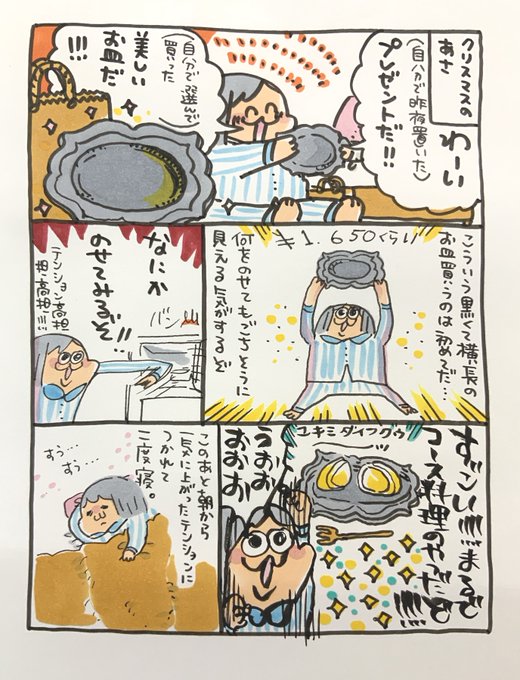 クリスマスの
あさ
わーい
(自分で昨夜置いた)
プレゼントだ!!
(自分で選んで
買った)
美しい
お皿だ
!!!
こういう黒くて横長の
お皿買うのは初めてだ…
¥1.650くらい
何をのせてもごちそうに
見える気がするぞ
なにか
のせてみるぞ!!
バン
テンション高担
担高担!!!!
すごい!!!!まるで
コース料理のやつだぞ
!!!!
ユキミダイフクウ
うおお
おおお
おお
このあと朝から
一気に上がったテンションに
つかれて
二度寝。
すぅ…
すぅ…